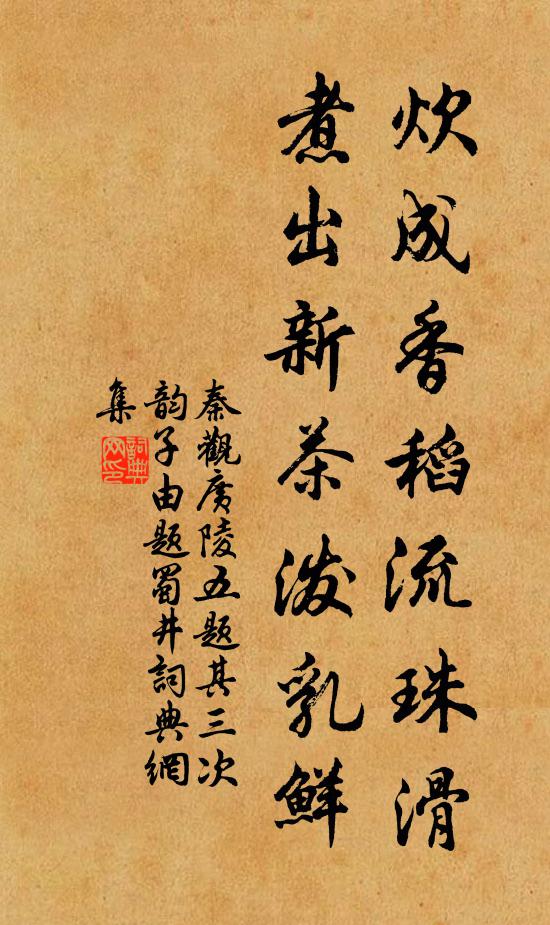 炊成香稻流珠滑
煮出新茶泼乳鮮
秦觀廣陵五題其三次
韵子由題蜀井詞典網
集
詞典網印